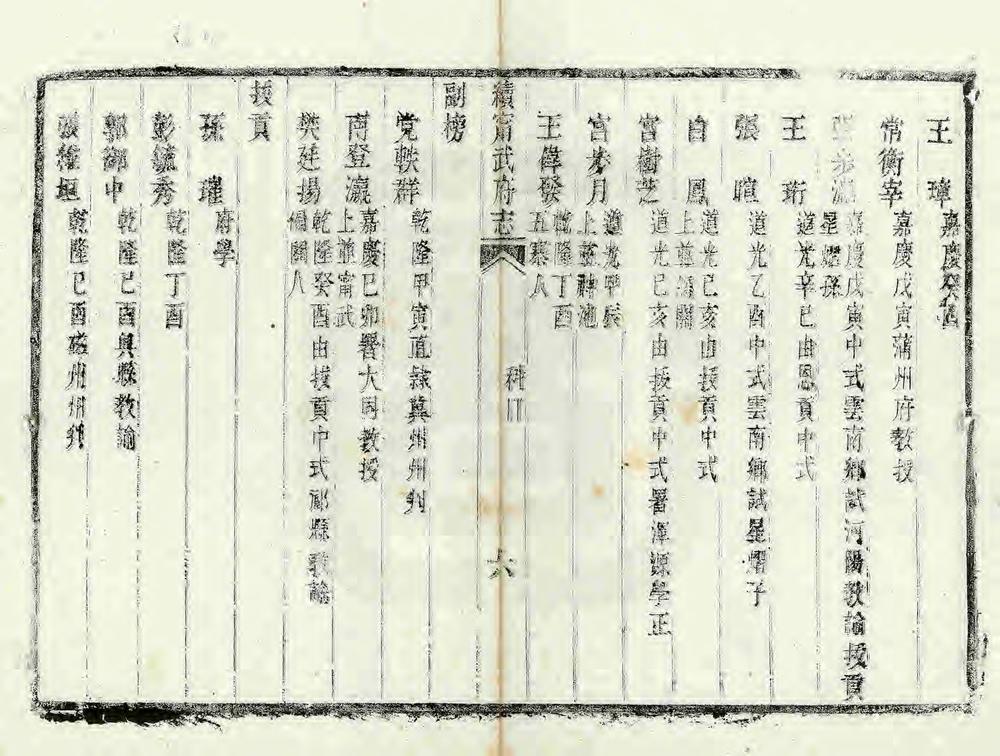 王 璋 嘉慶癸酉
常衡宰 嘉慶戊寅蒲州府教授
張泰瀛 嘉慶戊寅中式雲南鄉試河陽教諭拔貢
星燿孫
王 珩 道光辛巳由恩貢中式
張 暄 道光乙酉中式雲南鄉試星燿子
白 鳳 道光己亥由拔貢中式
上並偏關
宮樹芝 道光己亥由拔貢中式署渾源學正
宮步月 道光甲辰
上並神池
王偉發 乾隆丁酉
五寨人
續甯武府志 科目 六
副榜
党軼群 乾隆甲寅直隸冀州州判
南登瀛 嘉慶己卯署大同教授
上並甯武
樊廷揚 乾隆癸酉由拔貢中式祁縣教諭
偏關人
拔貢
孫 瓘 府學
彭毓秀 乾隆丁酉
郭御中 乾隆己酉興縣教諭
張維垣 乾隆己酉磁州州判